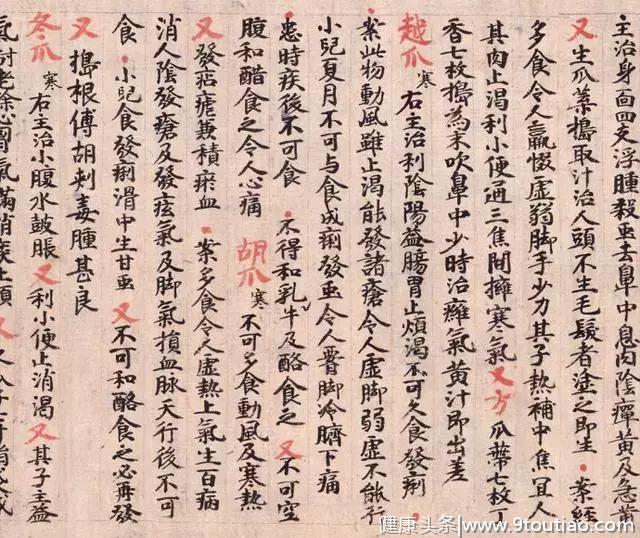 主治身面四支浮腫殺虫去鼻中息肉陰癉黄及急黄
又 生瓜葉搗取汁治人頭不生毛髮者塗之即生 ・案經
多食令人羸惙虚弱脚手少力其子熱補中焦宜人
其肉止渴利小便通三焦間擁寒氣 又方 瓜蔕七枚丁
香七枚搗為末吹鼻中少時治癰氣黄汁即出差
越瓜 寒 右主治利陰陽益腸胃止煩渴不可久食發痢 ・
・案此物動風雖止渴能發諸瘡令人虚脚弱虚不能行
小兒夏月不可与食成痢發虫令人瞢脚冷臍下痛
患時疾後不可食 ・不得和乳牛及酪食之 又 不可空
腹和醋食之令人心痛 胡瓜 寒 不可多食動風及寒熱
又 發痁瘧兼積瘀血 ・案多食令人虚熱上氣生百病
消人陰發瘡及發疰氣及脚氣損血脉天行後不可
食 ・小兒食發痢滑中生甘虫 又 不可和酪食之必再發
又 搗根傅胡刺毒腫甚良
冬瓜 寒 右主治小腹水皷脹 又 利小便止消渴 又 其子主益
氣耐老除心胸氣滿消痰止煩 又
健康头条/www.9toutiao.com